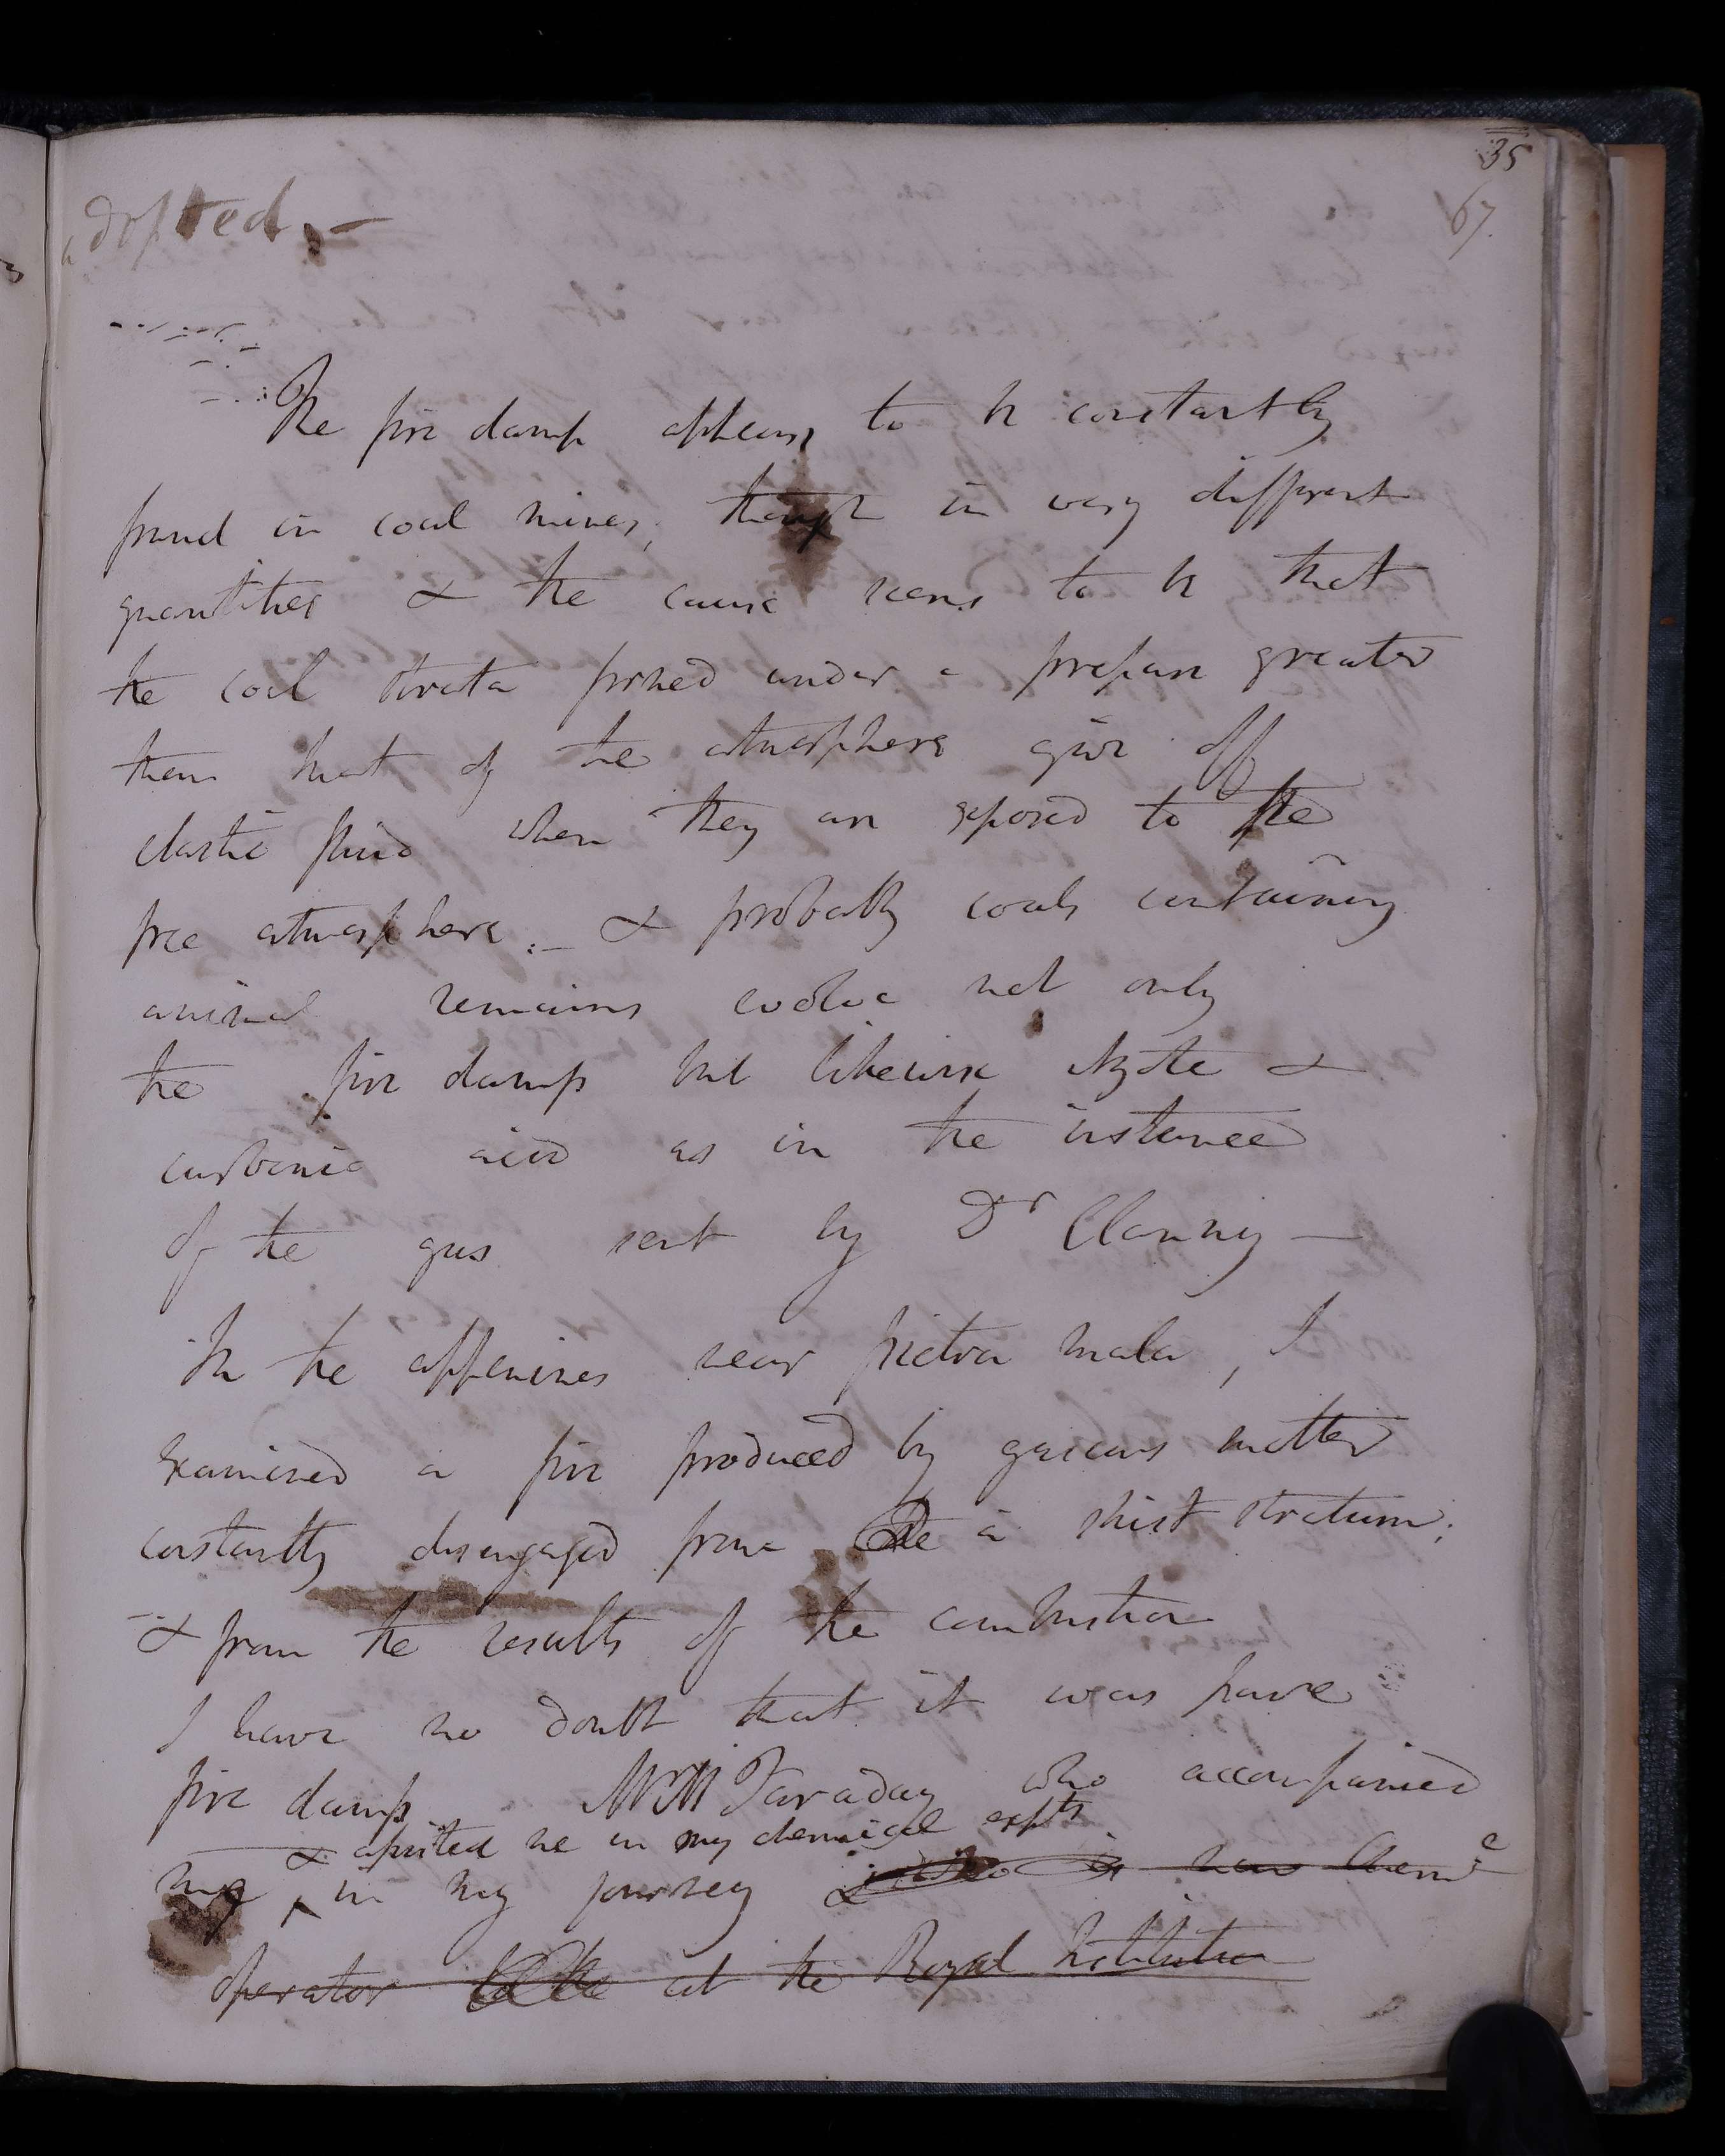 35
67.
adopted. –
The fire damp appears to be constantly
found in coal mines, though in very different
quantities & the cause seems to be that
the coal strata formed under a pressure greater
than that of the atmosphere give off
elastic fluid when they are exposed to the
free atmosphere. – & probably coals containing
animal remains evolve not only
the fire damp but likewise Azote &
carbonic acid as in the instance
of the gas sent by Dr Clanny –
In the appenines near pietra mala, I
examined a fire produced by gaseous matter
constantly disengaged from the a shist stratum;
& from the results of the combustion
I have no doubt that it was pure
fire damp Mr M Faraday who accompanied
& assisted me in my chemical expts
me in my journey & who is now Chemc
operator to the at the Royal Institution